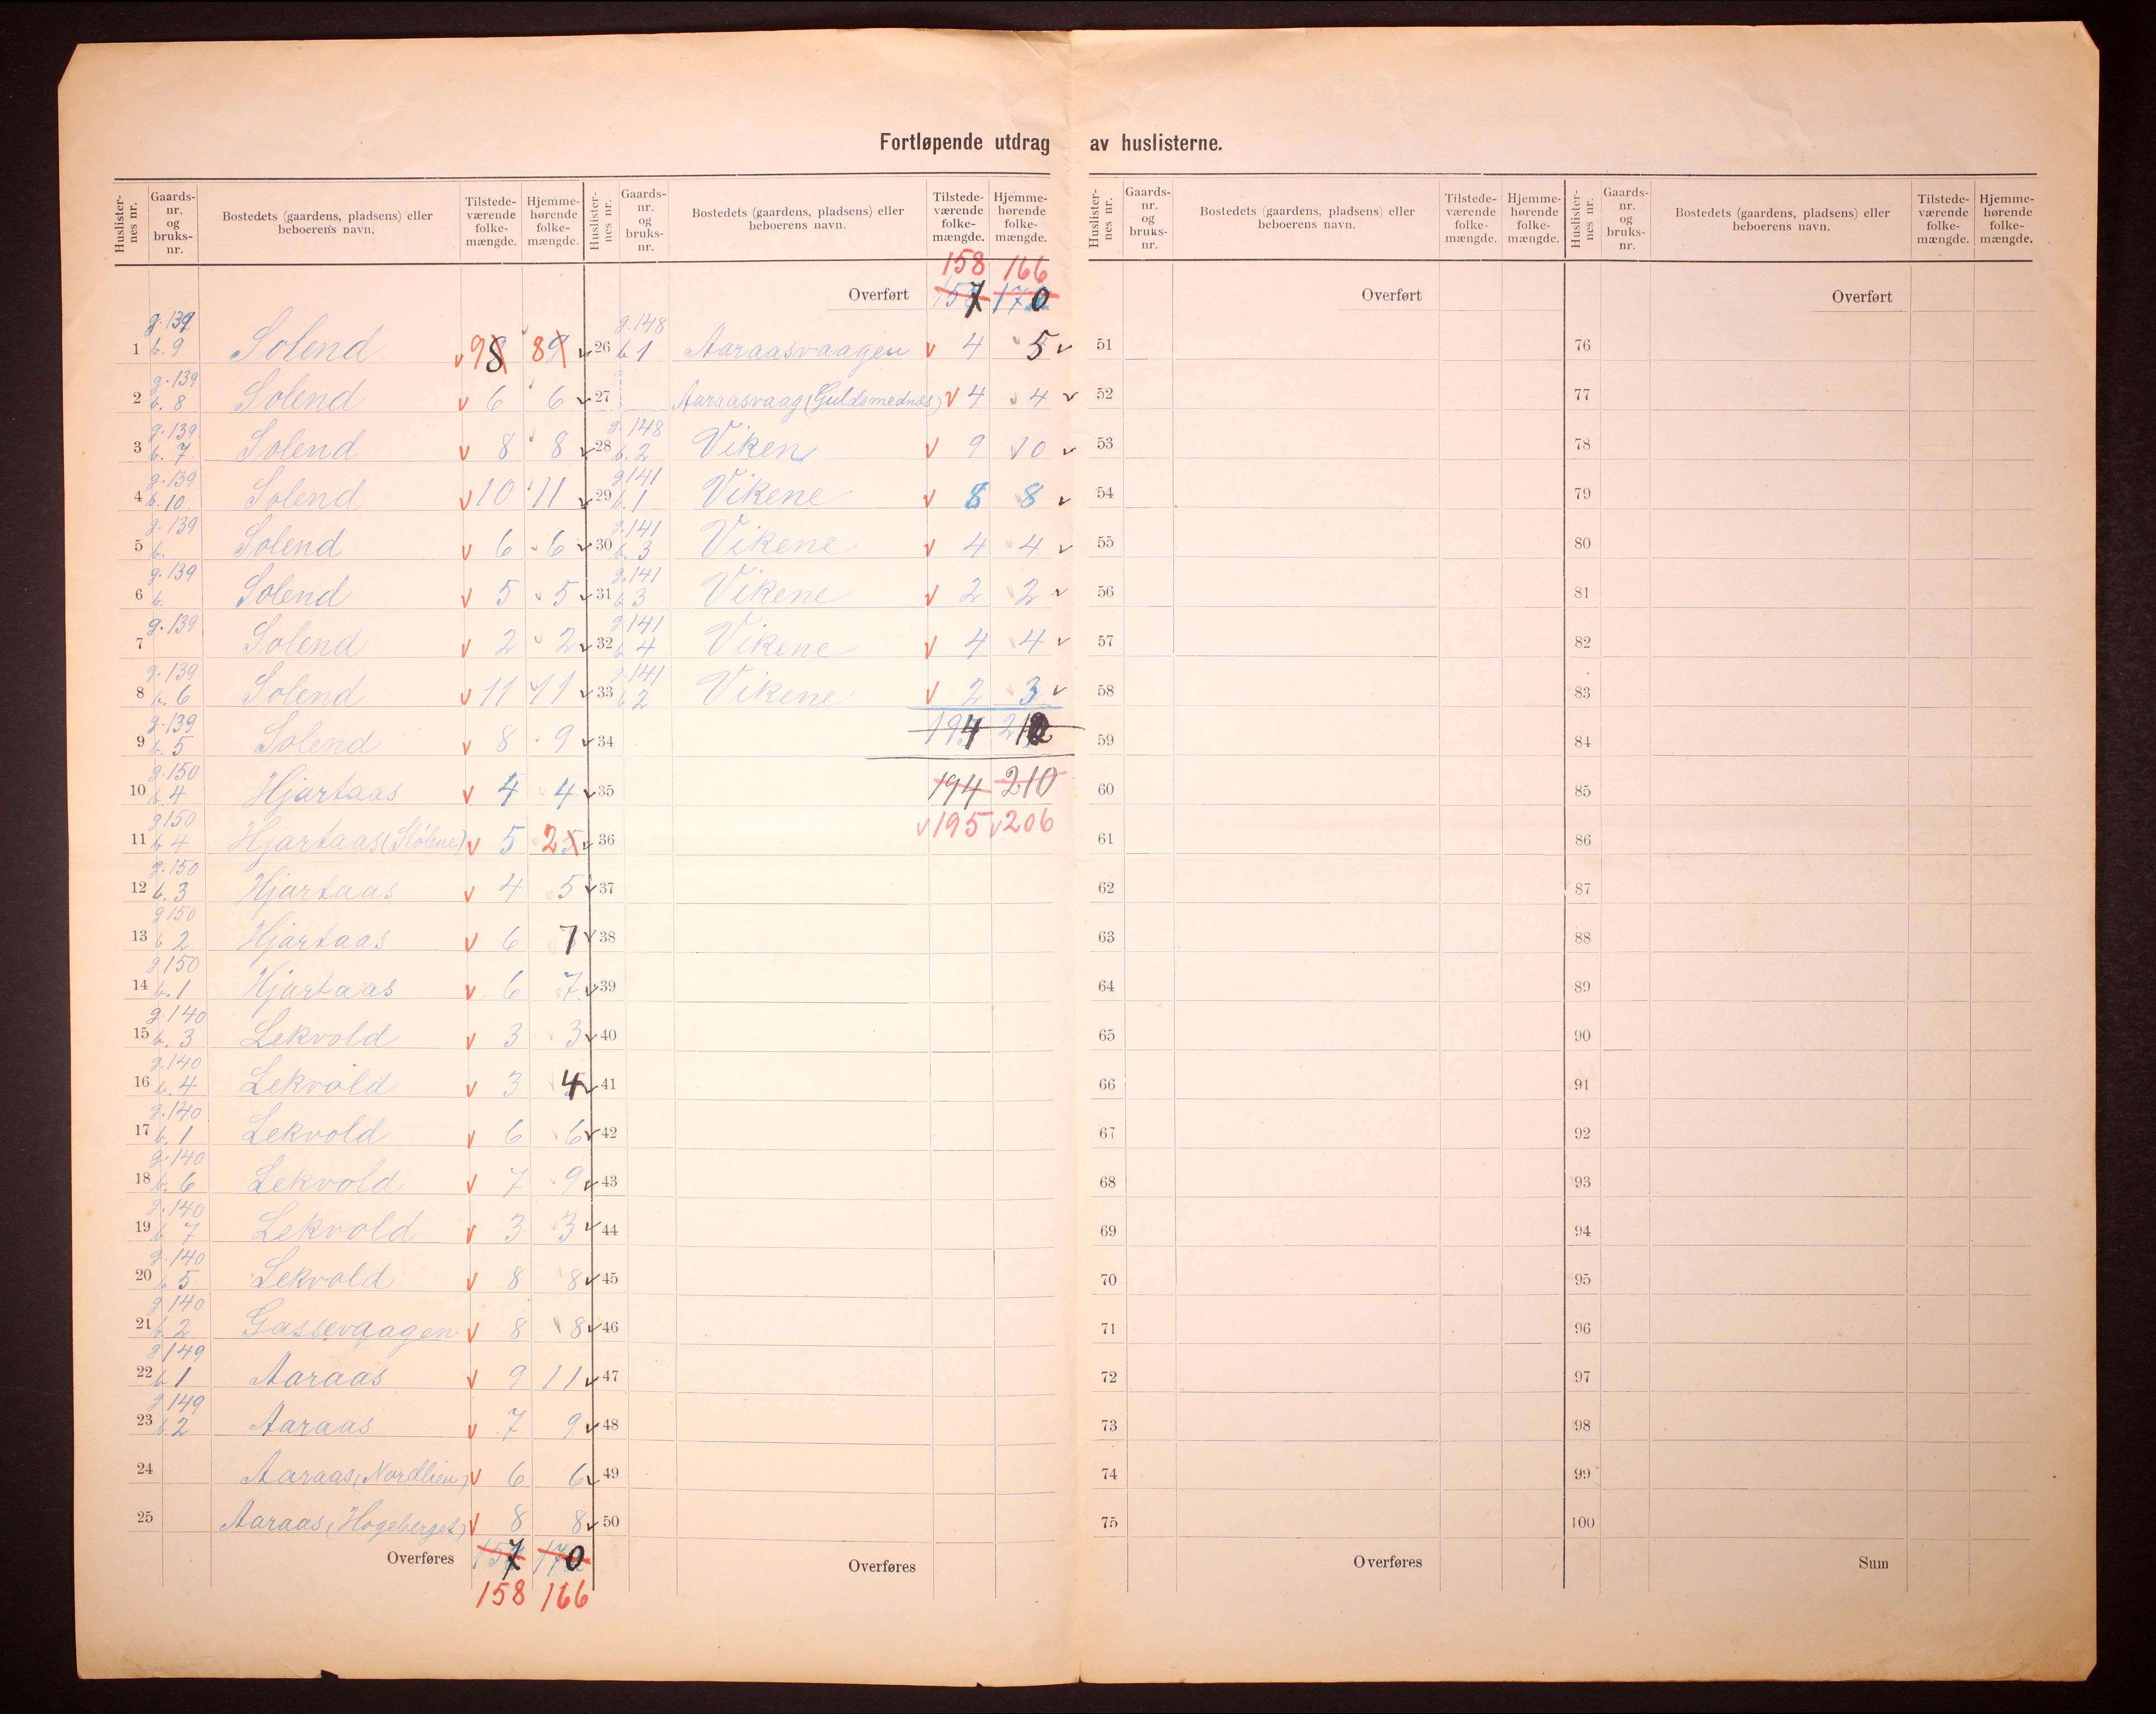 Fortløpende utdrag av huslisterne.
Huslister-nes nr. Gaards-nr. og bruks-nr. Bostedets (gaardens, pladsens) eller beboerens navn. Tilstede-værende folke-mængde. Hjemme-hørende folke-mængde.
g. 139
1 b. 9 Solend v 9 8 8 9 v
g. 139
2 b. 8 Solend v 6 6 v
g. 139
3 b. 7 Solend v 8 8 v
g. 139
4 b. 10 Solend v 10 11 v
g. 139
5 b. Solend v 6 6 v
g. 139
6 b. Solend v 5 5 v
g. 139
7 Solend v 2 2 v
g. 139
8 b. 6 Solend v 11 11 v
g. 139
9 b. 5 Solend v 8 9 v
g. 150
10 b. 4 Hjartaas v 4 4 v
g 150
11 b 4 Hjartaas (Stølene) v 5 2 5 v
g. 150
12 b. 3 Hjartaas v 4 5 v
g 150
13 b 2 Hjartaas v 6 7 v
g 150
14 b. 1 Hjartaas v 6 7 v
g. 140
15 b. 3 Lekvold v 3 3 v
g. 140
16 b. 4 Lekvold v 3 4 v
g. 140
17 b. 1 Lekvold v 6 6 v
g. 140
18 b. 6 Lekvold v 7 9 v
g. 140
19 b 7 Lekvold v 3 3 v
g. 140
20 b 5 Lekvold v 8 8 v
g 140
21 b 2 Gassevaagen v 8 8 v
g 149
22 b 1 Aaraas v 9 11 v
g 149
23 b 2 Aaraas v 7 9 v
24 Aaraas (Nordlien) v 6 6 v
25 Aaraas (Hogeberget) v 8 8 v
Overføres 157 170
158 166
Huslister-nes nr. Gaards-nr. og bruks-nr. Bostedets (gaardens, pladsens) eller beboerens navn. Tilstede-værende folke-mængde. Hjemme-hørende folke-mængde.
158 166
Overført 157 170
g. 148
26 b 1 Aaraasvaagen v 4 5 v
27 Aaraasvaag (Guldsmednes) v 4 4 v
g. 148
28 b. 2 Viken v 9 10 v
g 141
29 b. 1 Vikene v 8 8 v
g. 141
30 b. 3 Vikene v 4 4 v
g. 141
31 b 3 Vikene v 2 2 v
g 141
32 b 4 Vikene v 4 4 v
g. 141
33 b 2 Vikene v 2 3 v
34 194 210
35 194 210
36 v 195 v 206
37
38
39
40
41
42
43
44
45
46
47
48
49
50
Overføres
Huslister-nes nr. Gaards-nr. og bruks-nr. Bostedets (gaardens, pladsens) eller beboerens navn. Tilstede-værende folke-mængde. Hjemme-hørende folke-mængde.
Overført
51
52
53
54
55
56
57
58
59
60
61
62
63
64
65
66
67
68
69
70
71
72
73
74
75
Overføres
Huslister-nes nr. Gaards-nr. og bruks-nr. Bostedets (gaardens, pladsens) eller beboerens navn. Tilstede-værende folke-mængde. Hjemme-hørende folke-mængde.
Overført
76
77
78
79
80
81
82
83
84
85
86
87
88
89
90
91
92
93
94
95
96
97
98
99
100
Sum